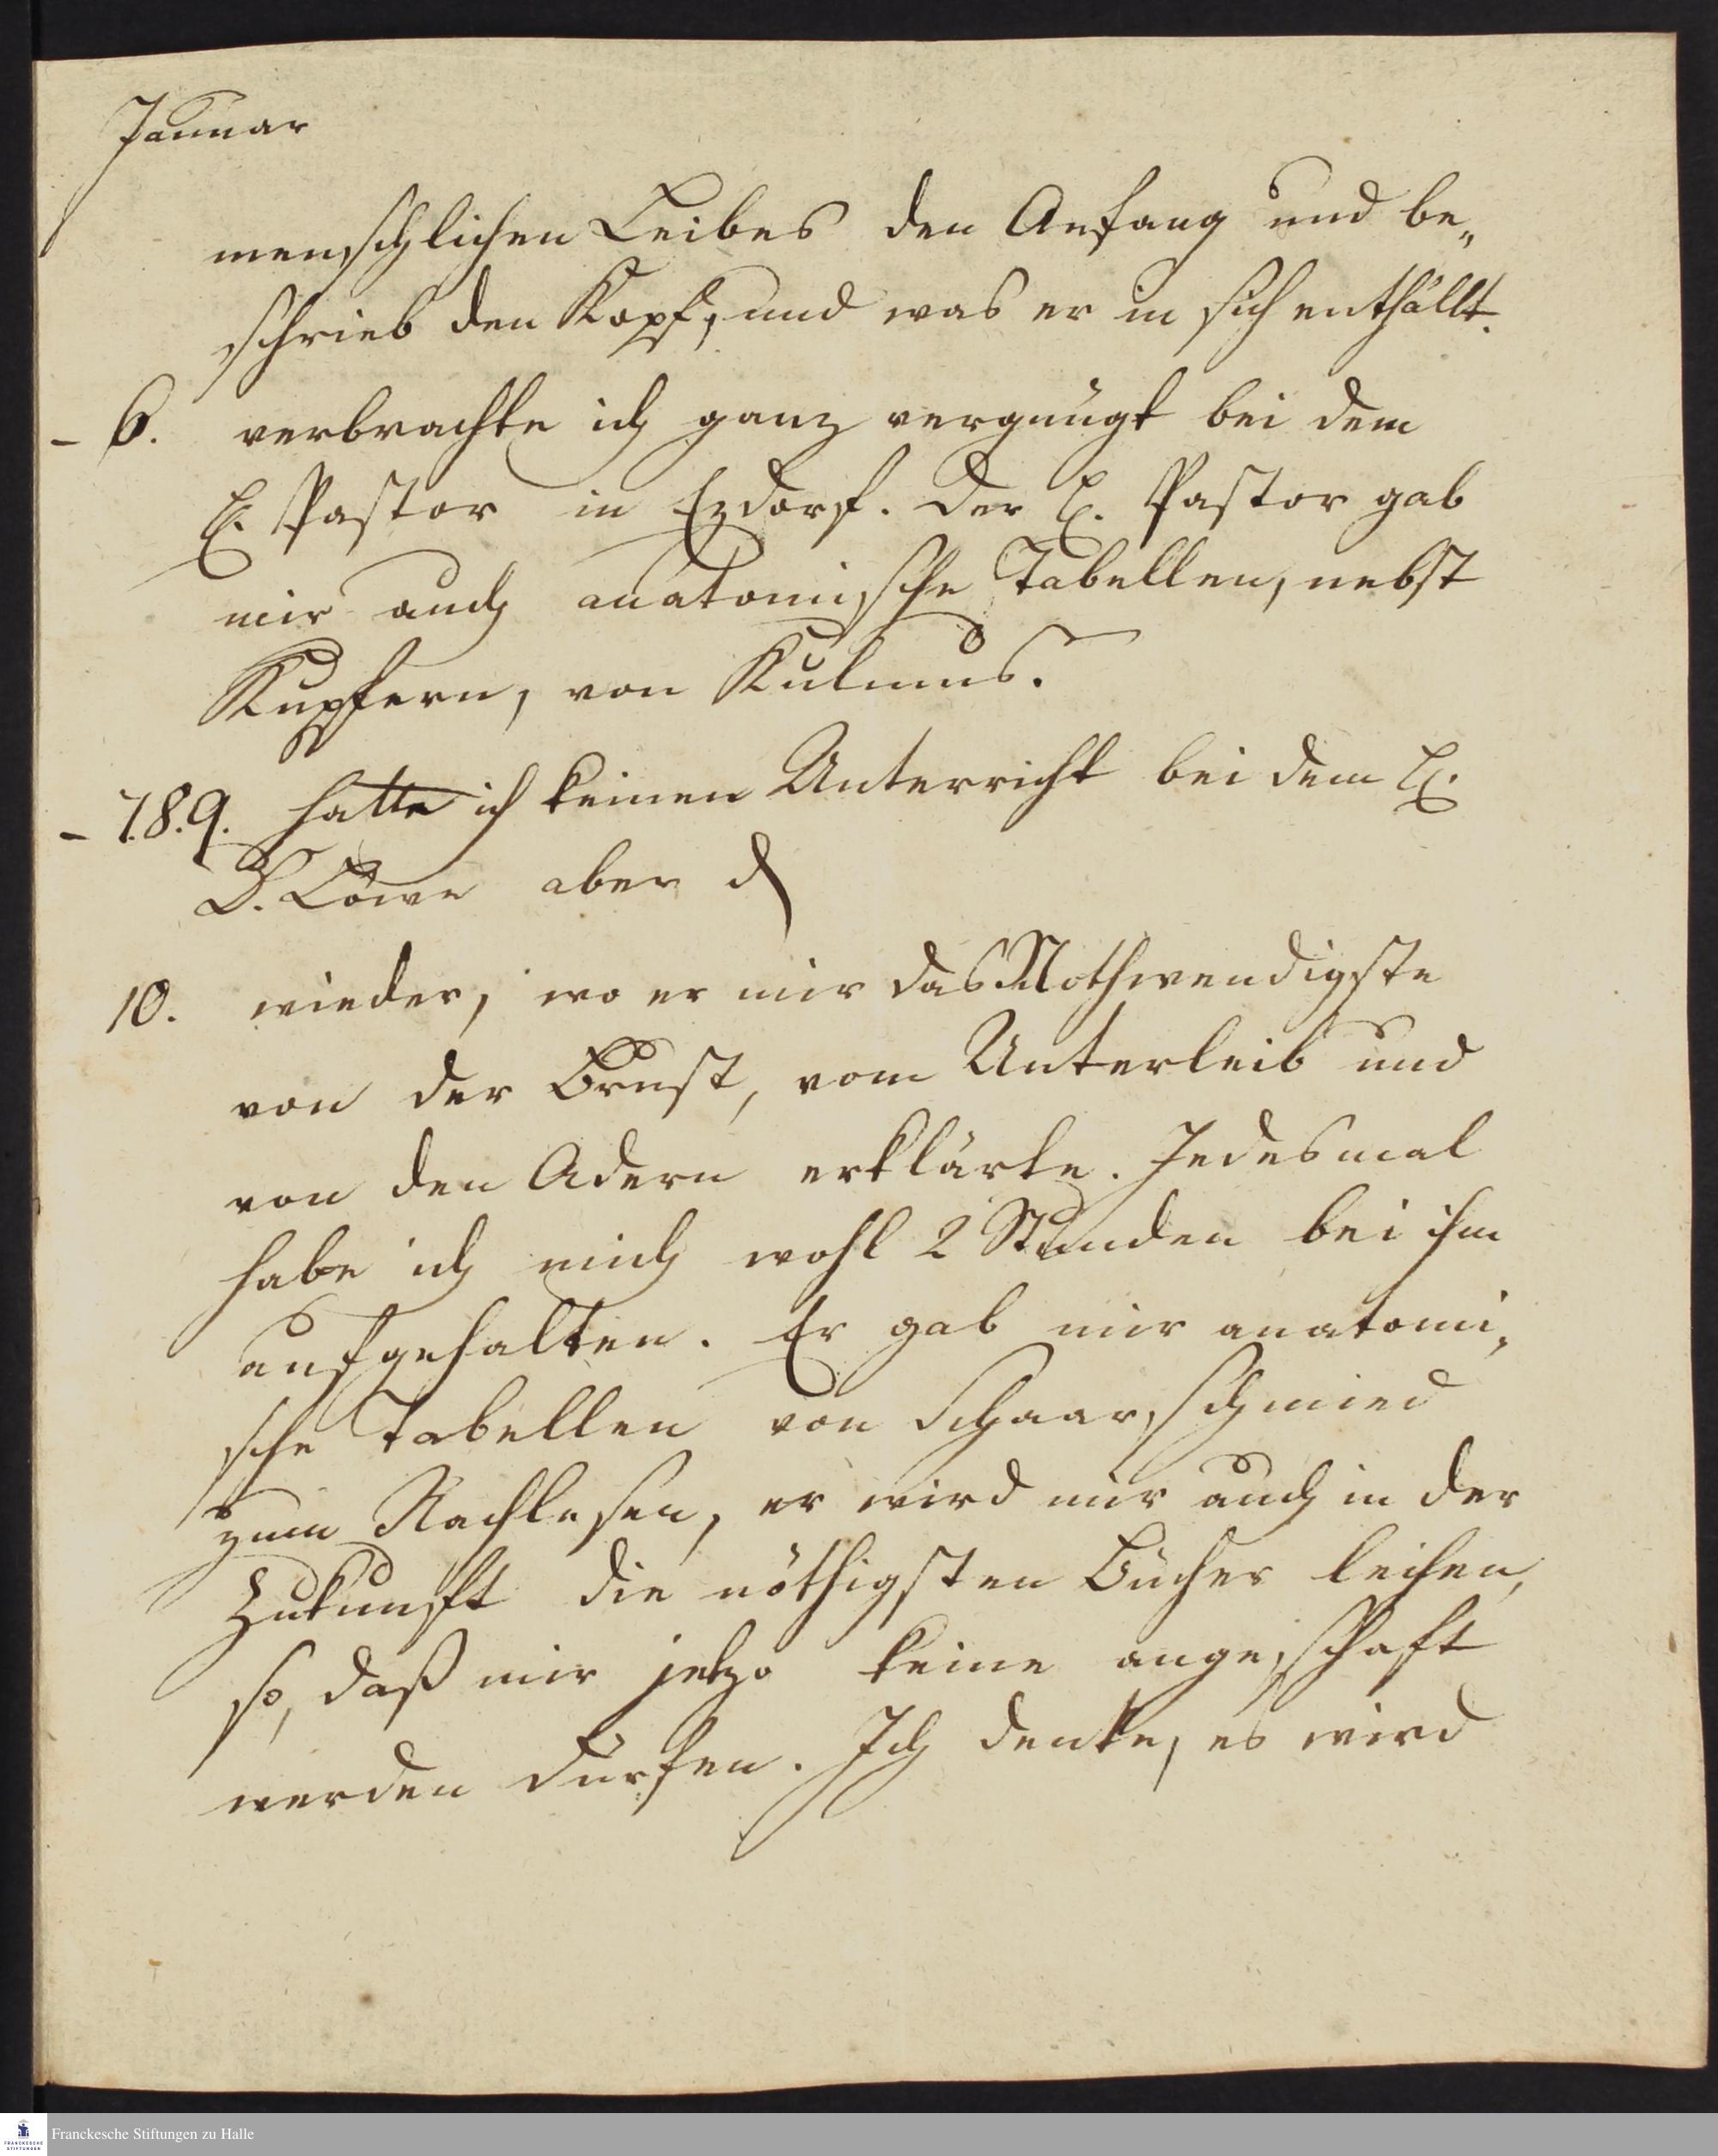 Januar
menschlichen Leibes den Anfang und be„
schrieb den Kopf, und was er in sich enthällt.
– 6. verbrachte ich ganz vergnügt bei dem
H. Pastor in Ezdorf. Der H. Pastor gab
mir auch anatomische Tabellen, nebst
Kupfern, von Kulmus.
– 7.8.9. hatte ich keinen Unterricht bei dem H.
D. Löwe aber d
10. wieder, wo er mir das Nothwendigste
von der Brust, vom Unterleib und
von den Adern erklärte. Jedesmal
habe ich mich wohl 2 Stunden bei ihm
aufgehalten. Er gab mir anatomi„
sche Tabellen von Schaarschmied
zum Nachlesen, er wird mir auch in der
Zukunft die nöthigsten Bücher leihen,
so, daß mir jetzo keine angeschaft
werden dürfen. Ich denke, es wird
Franckesche Stiftungen zu Halle
FRANCKESCHE
STIFTUNGEN